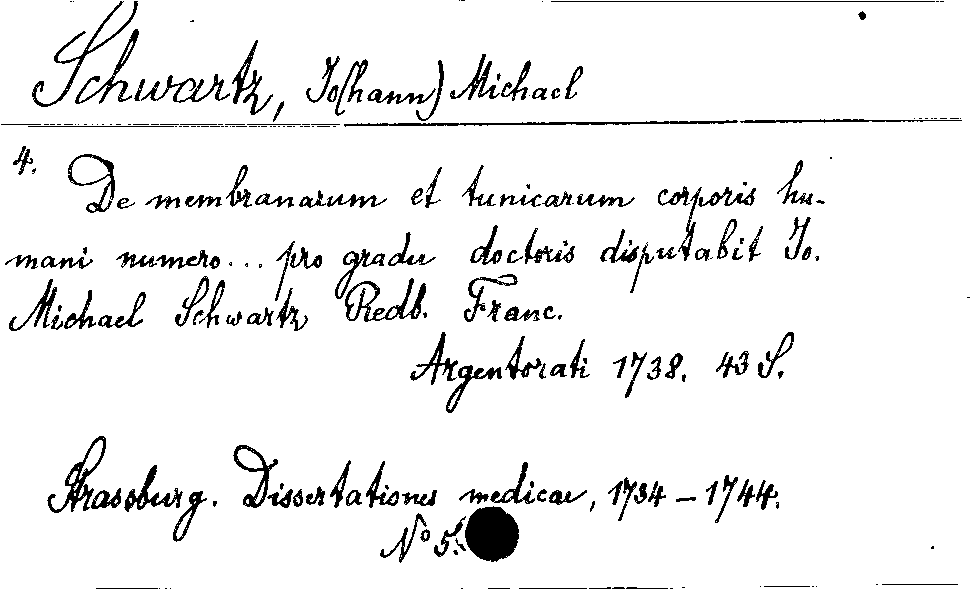 Schwartz, Jo(hann) Michael
4.
De membranarum et tunicarum corporis hu-
mani numero... pro gradu doctoris disputabit Jo.
Michael Schwartz Redb. Franc.
Argentorati 1738. 43 S.
Strassburg. Dissertationes medicae, 1734 - 1744.
No 5.